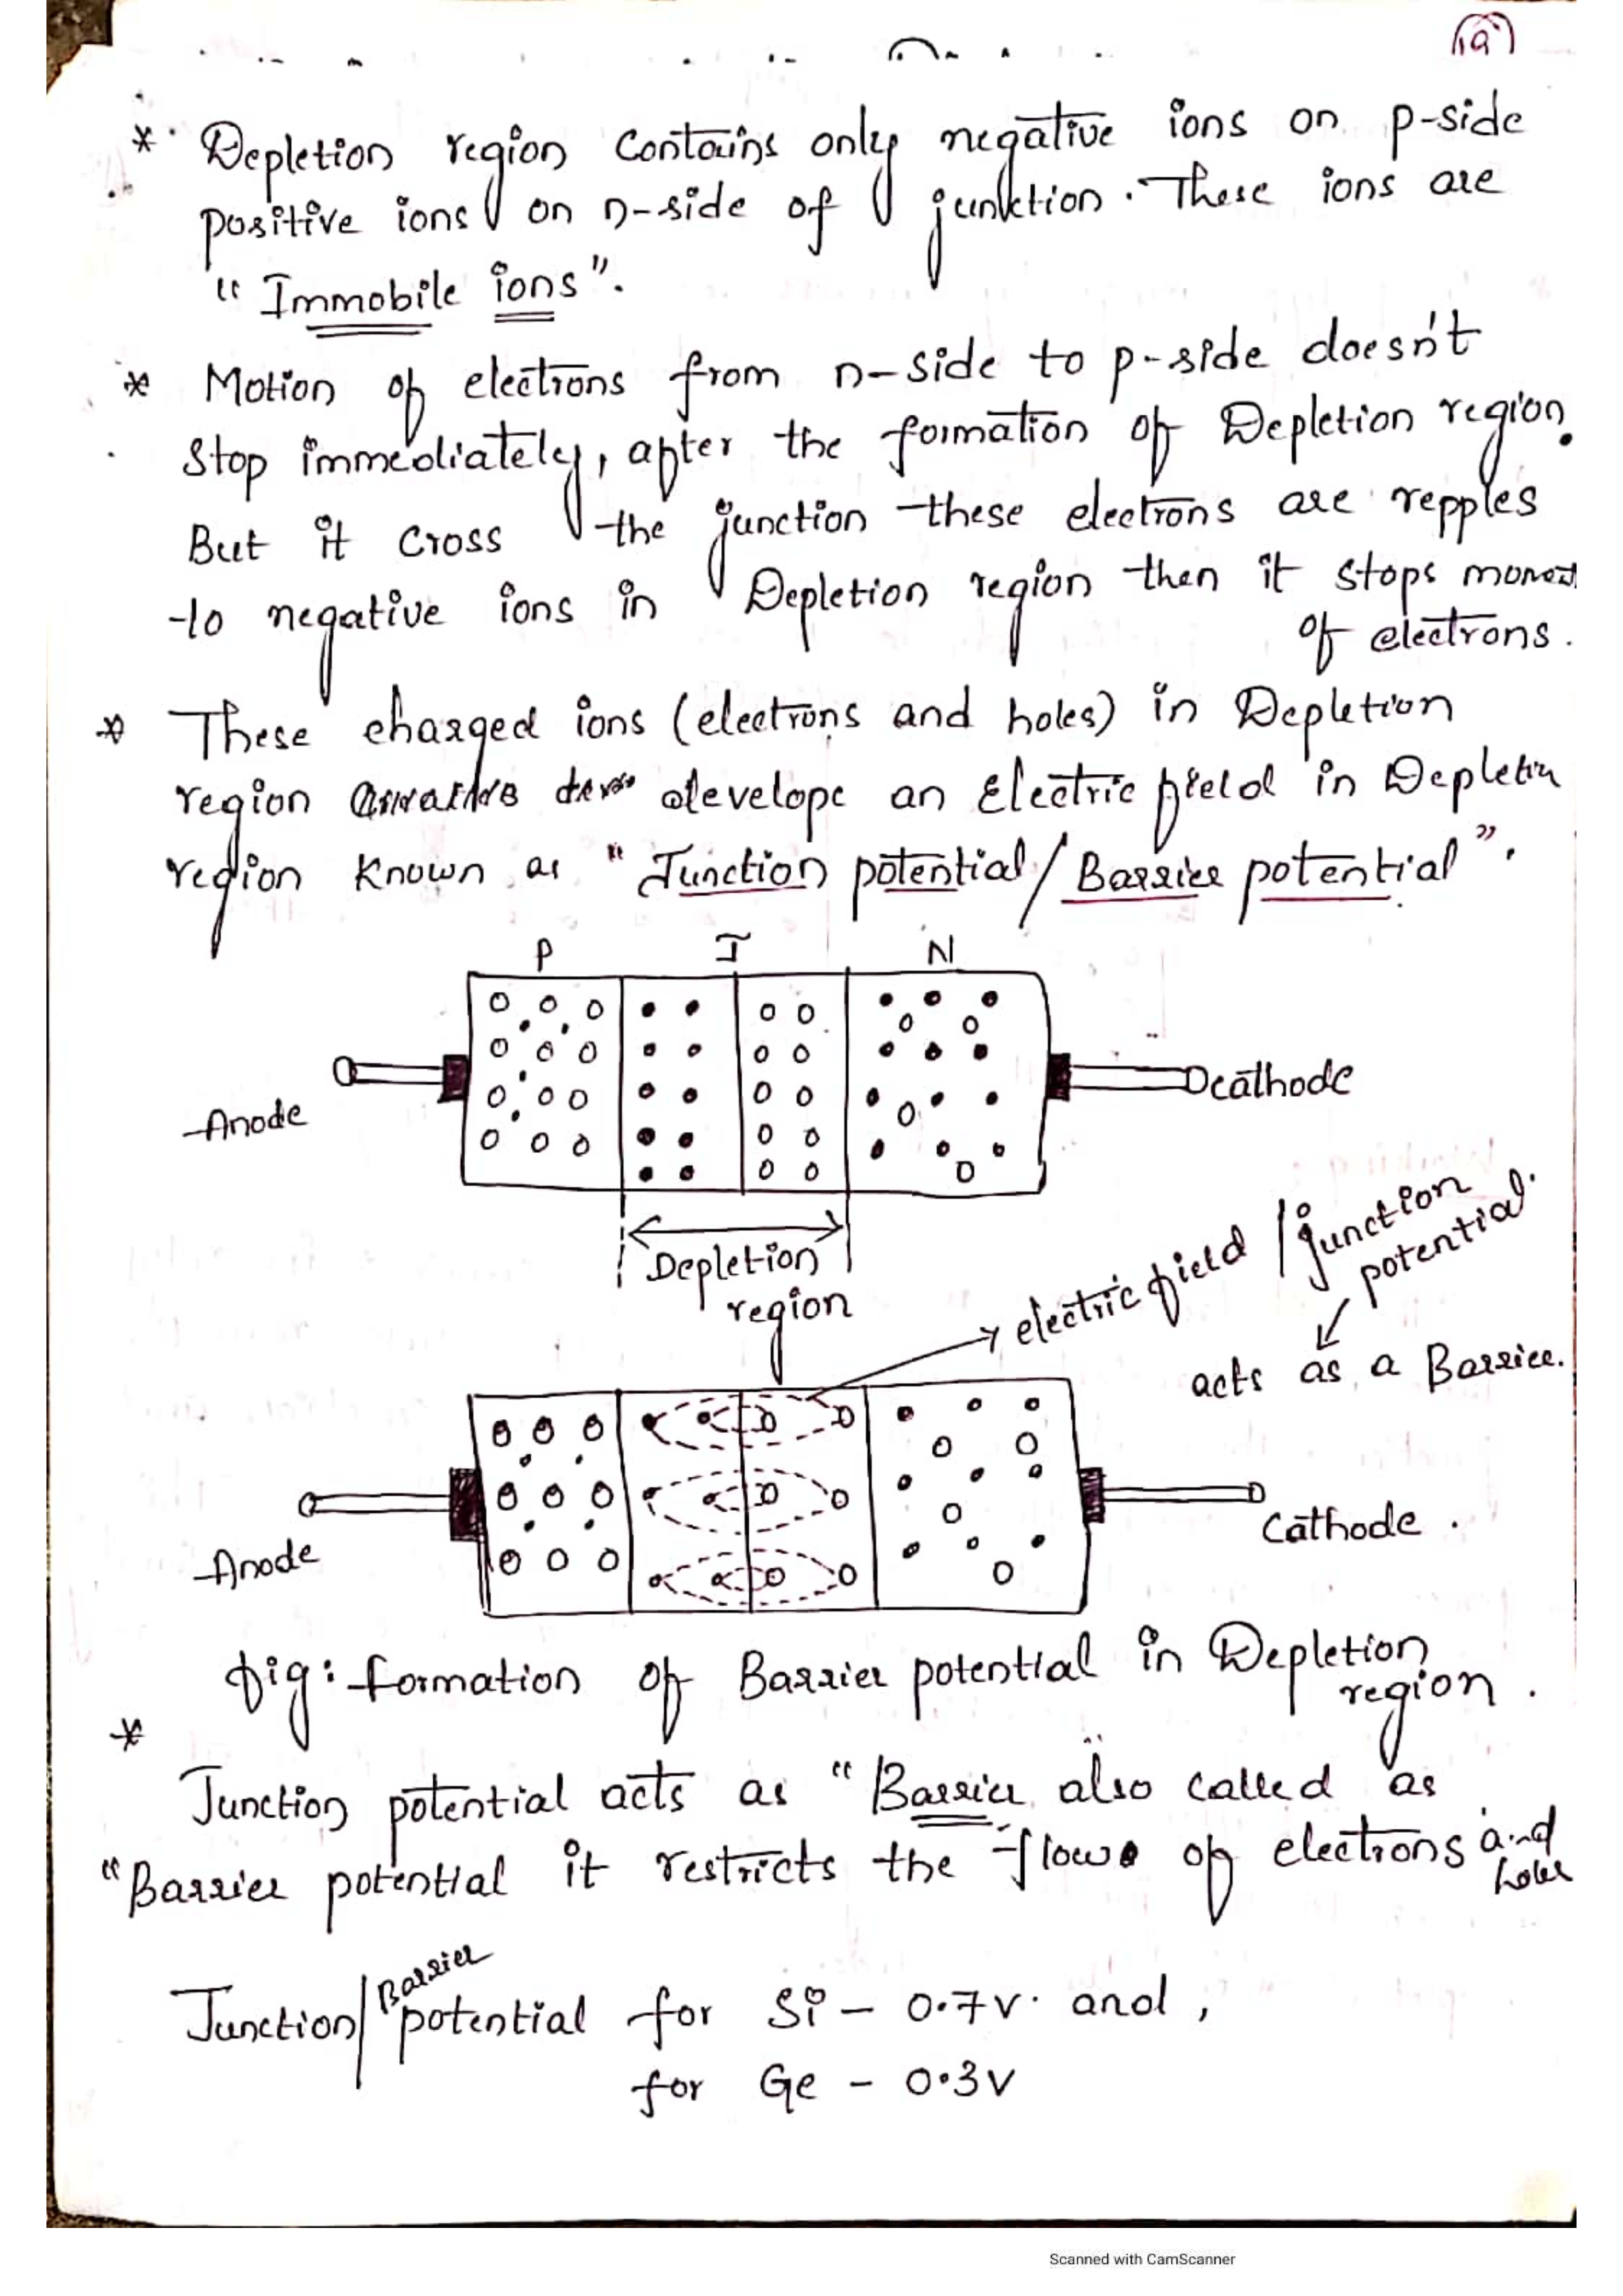 * Depletion region contains only negative ions on p-side
positive ions on n-side of junktion. These ions are
"Immobile ions".
* Motion of electrons from n-side to p-side doesn't
stop immediately, after the formation of Depletion region.
But it cross the junction these electrons are repples
to negative ions in Depletion region then it stops
of electrons.
* These charged ions (electrons and holes) in Depletion
region develope an Electric field in Depletin
region known as "Junction potential/Barrier potential".
P J N
Anode
cathode
Depletion
region
electric field / junction
potential.
acts as a Barrier.
Anode
Cathode.
fig: formation of Barrier potential in Depletion
region.
*
Junction potential acts as "Barrier also called as
"Barrier potential it restricts the flow of electrons and
holes
Junction/Barrier potential for Si - 0.7v. and,
for Ge - 0.3v
Scanned with CamScanner